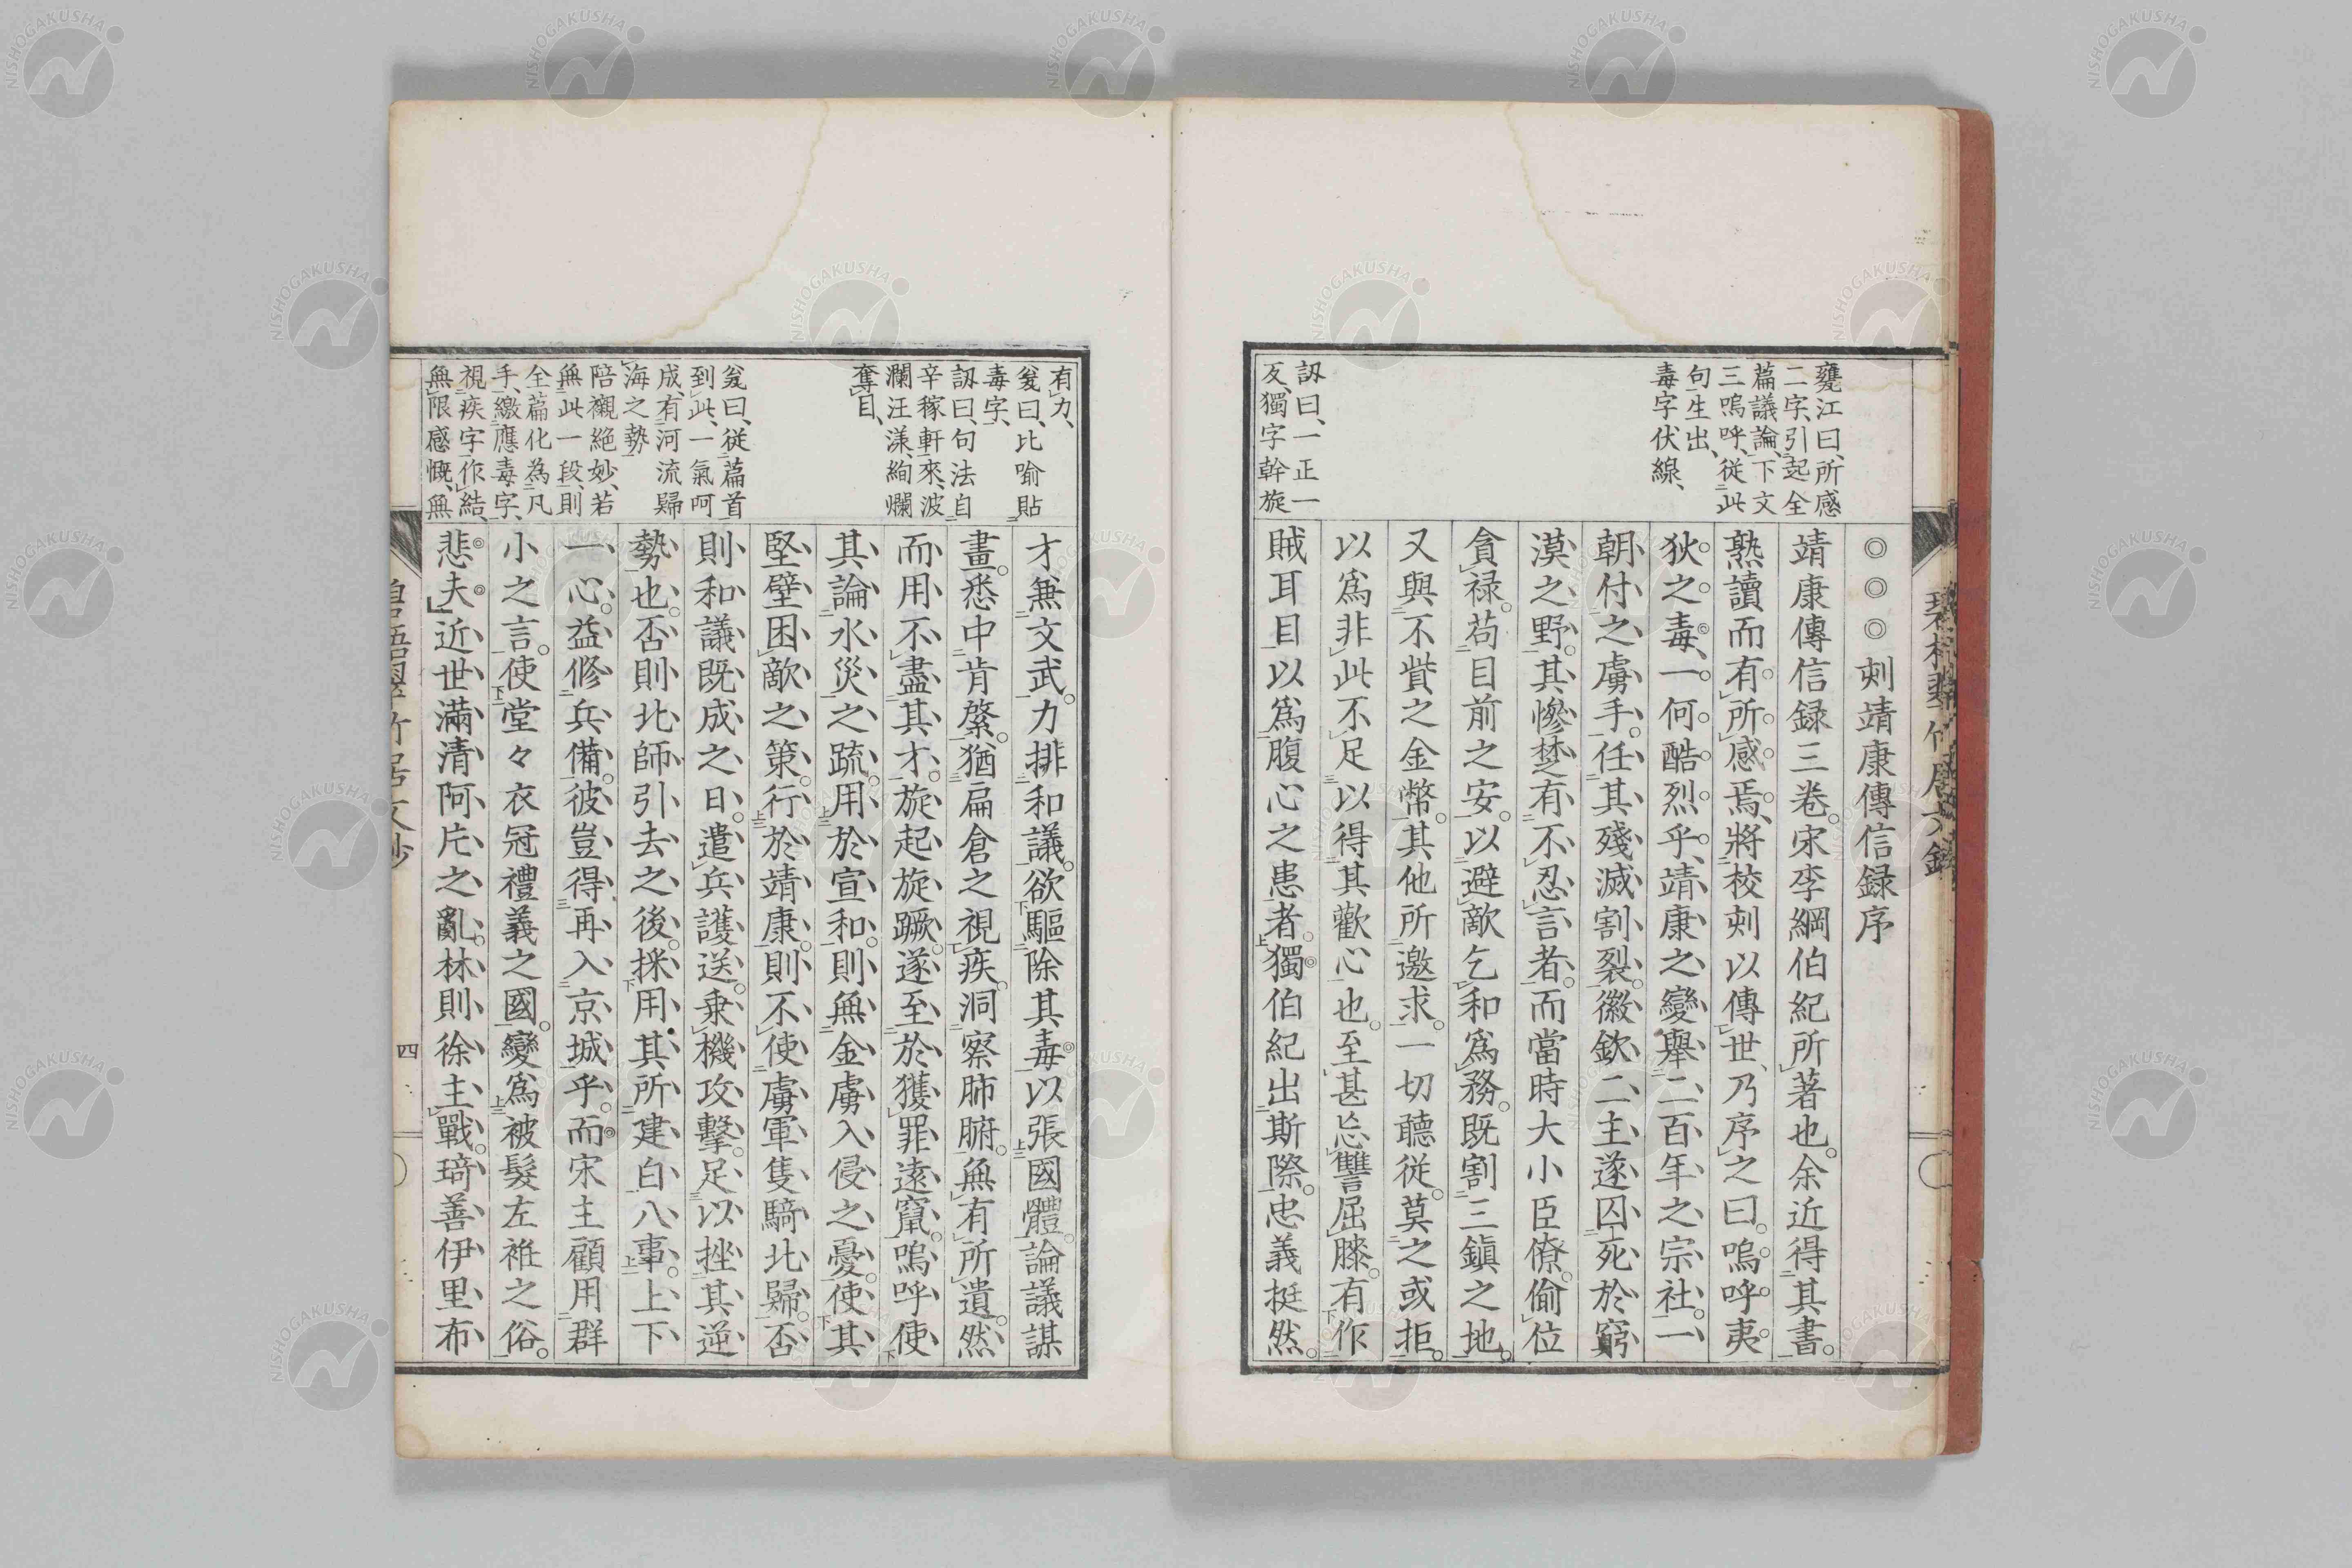 甕江曰、所感
二字、引起全
篇議論、下文
三嗚呼、従此
句生出、
毒字伏線、
訒曰、一正一
反、獨字幹旋
◎◎◎刻靖康傳信録序
靖康傳信録三卷。宋李綱伯紀所著也。余近得其書。
熟讀而有所感焉、將校刻以傳世、乃序之曰。嗚呼夷
狄之毒、一何酷烈乎、靖康之變、擧二百年之宗社。一
朝付之虜手。任其殘滅割裂。徽欽二主遂囚死於窮
漠之野。其慘楚有不忍言者。而當時大小臣僚。偷位
貪禄。苟目前之安。以避敵乞和爲務。既割三鎭之地。
又與不貲之金幣。其他所邀求。一切聽從。莫之或拒。
以爲非此不足以得其歡心也。至甚忘讐屈膝。有作
賊耳目以爲腹心之患者。獨伯紀出斯際。忠義挺然。
有力、
夋曰、比喻貼
毒字、
訒曰、句法自
辛稼軒來、波
瀾汪漾、絢爛
奪目、
夋曰、従篇首
到此、一氣呵
成、有河流歸
海之勢
陪襯絶妙、若
無此一段、則
全篇化為凡
手、繳應毒字、
視疾字作結、
無限感慨、無
才無文武。力排和議。欲驅除其毒以張國體。論議謀
畫。悉中肯綮。猶扁倉之視疾。洞察肺腑。無有所遺。然
而用不盡其才。旋起旋蹶。遂至於獲罪遠竄。嗚呼使
其論水災之疏。用於宣和。則無金虜入侵之憂。使其
堅壁困敵之策。行於靖康。則不使虜軍隻騎北歸。否
則和議既成之日。遣兵護送。乗機攻擊。足以挫其逆
勢也。否則北師引去之後。採用其所建白八事。上下
一心。益修兵備。彼豈得再入京城乎。而宋主顧用群
小之言。使堂々衣冠禮義之國。變爲被髮左袵之俗。
悲夫。近世滿清阿片之亂。林則徐主戰。琦善伊里布
四